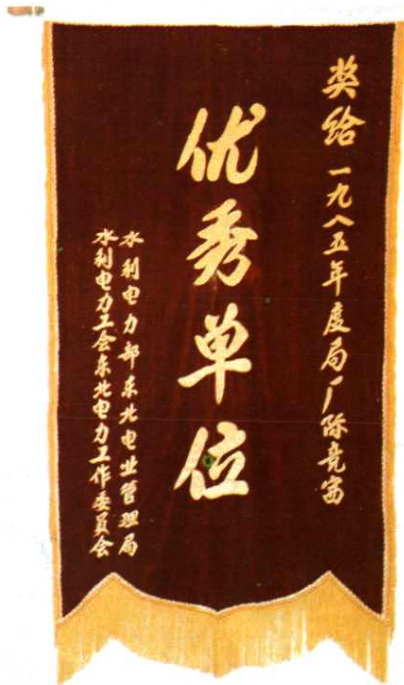 奖给一九八五年度局厂际竞赛
优秀单位
水利电力部东北电业管理局
水利电力工会东北电力工作委员会